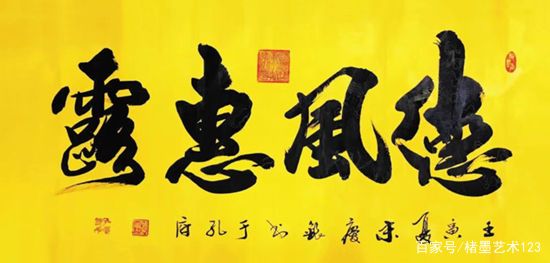 德風惠露
壬寅夏末慶銀书于孔府
百家号/楮墨艺术123